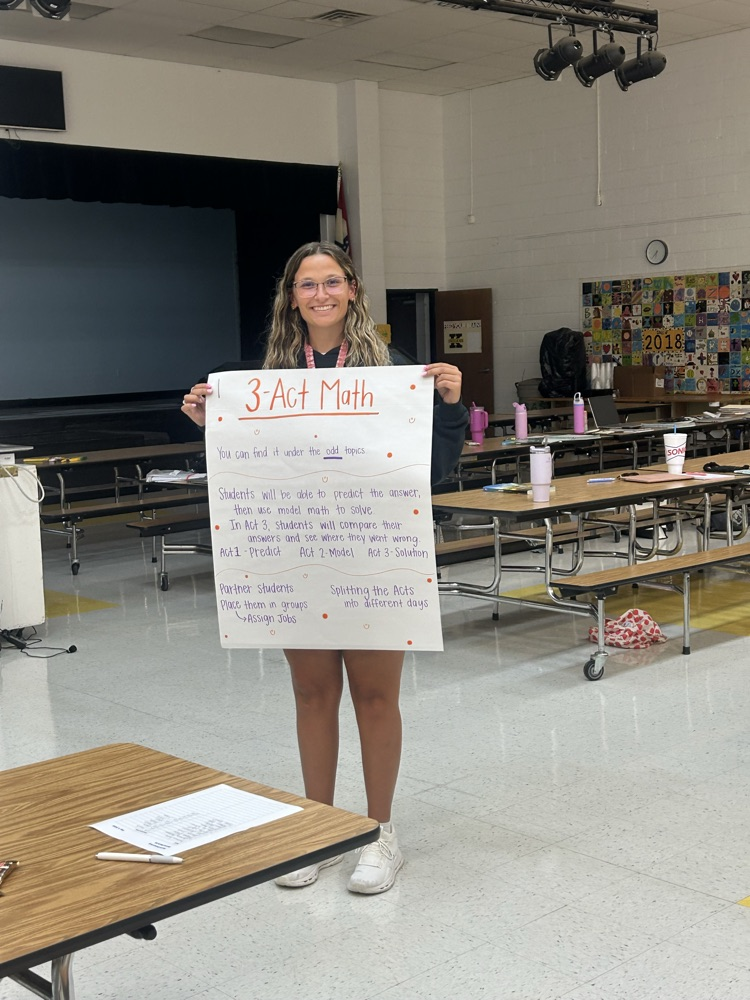 3-Act Math
You can find it under the odd topics
Students will be able to predict the answer,
then use model math to solve
In Act 3, students will compare their
answers and see where they went wrong.
Act 1 - Predict Act 2 - Model Act 3 - Solution
Partner Students
Place them in groups
↳ Assign Jobs
Splitting the Acts
into different days
2018
SONIC